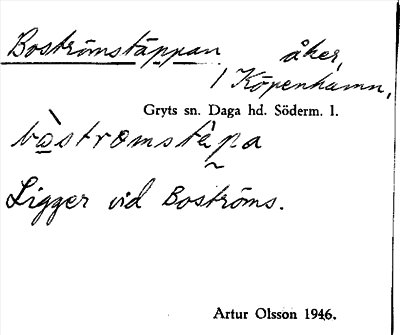 Boströmstäppan åker,
/ Köpenhamn,
Gryts sn. Daga hd. Söderm. l.
bòstromstépa
Ligger vid Boströms.
Artur Olsson 1946.